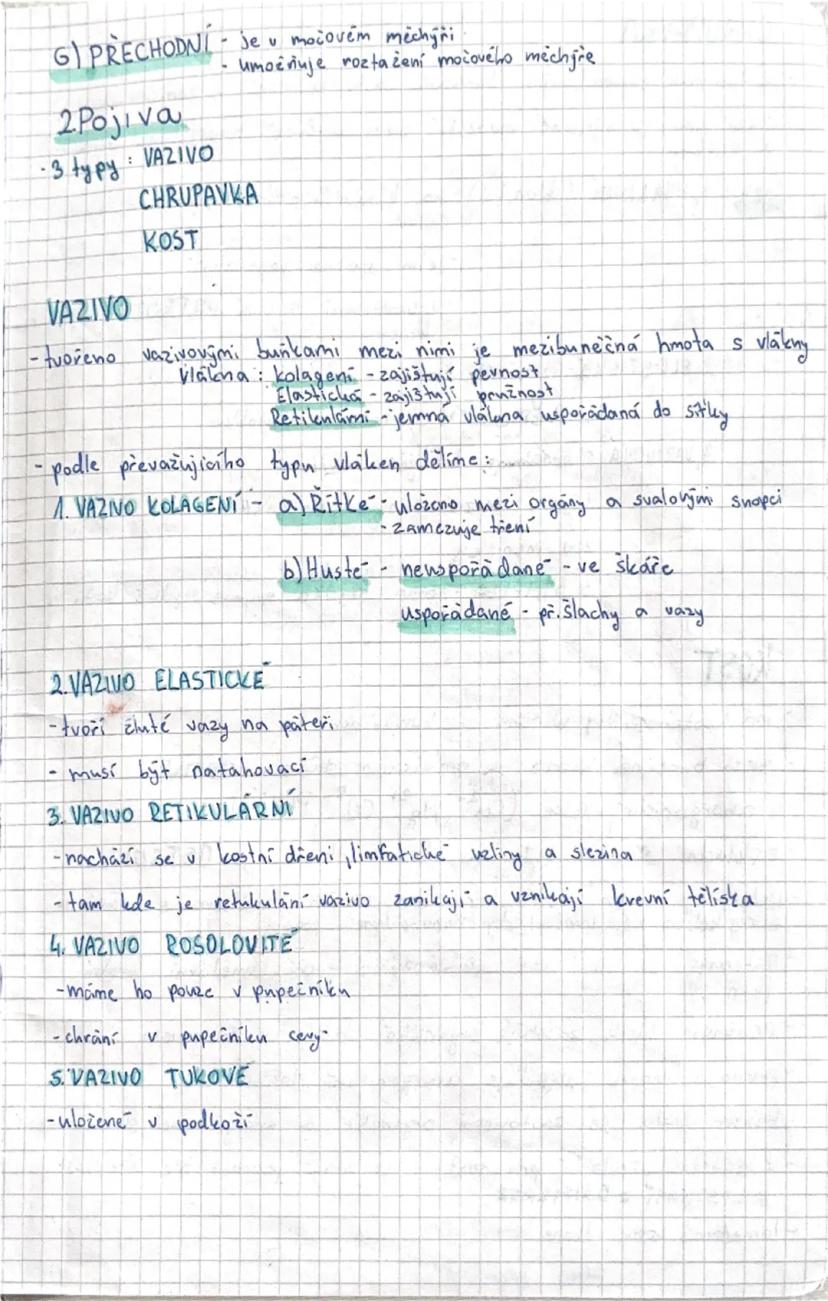 6) PŘECHODNÍ - je v močovém měchýři
- umožňuje roztažení močového měchýře
2. Pojiva
· 3 typy : VAZIVO
CHRUPAVKA
KOST
VAZIVO
- tvořeno vazivovými buňkami mezi nimi je mezibuněčná hmota s vlákny
Vlákna : kolagení - zajištují pevnost
Elastická - zajištují pružnost
Retikulární - jemná vlákna uspořádaná do sítky
- podle převažujícího typu vláken dělíme :
1. VAZIVO KOLAGENÍ - a) Řítké - uloženo mezi orgány a svalovými snopci
- zamezuje tření
b) Husté - neuspořádané - ve škáře
uspořádané - př. šlachy a vazy
2. VAZIVO ELASTICKÉ
- tvoří žluté vazy na páteři
- musí být natahovací
3. VAZIVO RETIKULÁRNÍ
- nachází se v kostní dřeni, limfatické uzliny a slezina
- tam kde je retukulání vazivo zanikají a vznikají krevní tělíska
4. VAZIVO ROSOLOVITÉ
- máme ho pouze v pupečníku
- chrání v pupečníku cevy
5. VAZIVO TUKOVÉ
- uložené v podkoží